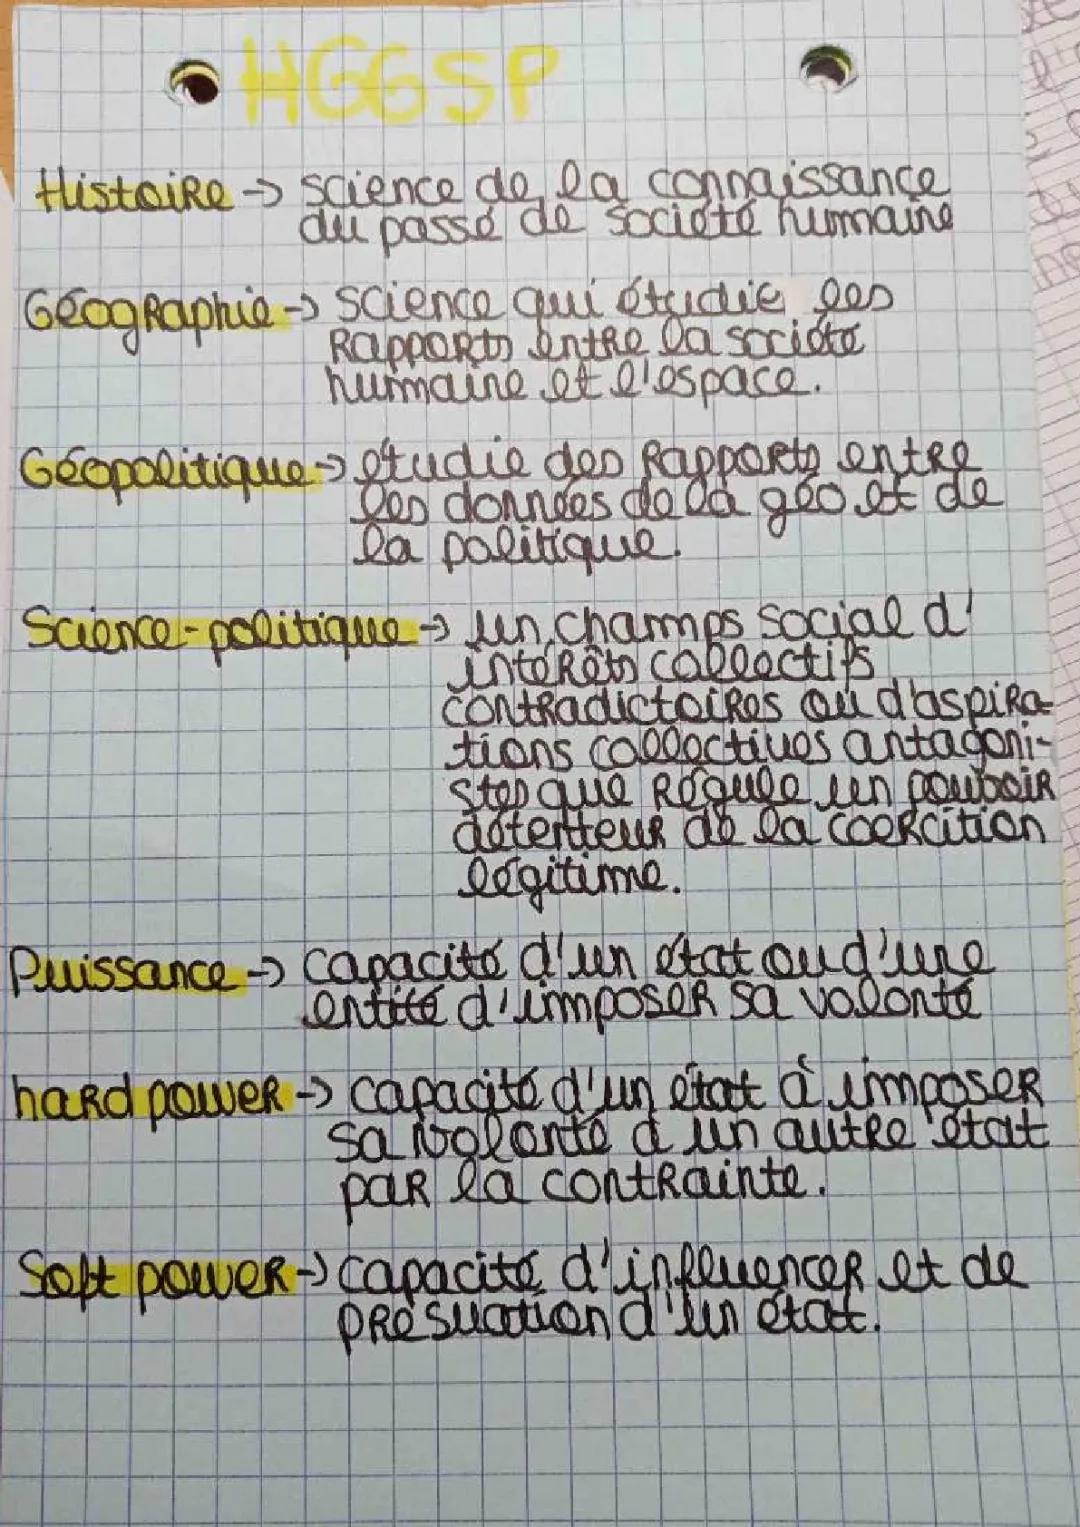 HGGSP
Histoire → science de la connaissance
du passé de société humaine
Géographie → science qui étudie les
Rapports entre la société
humaine et l'espace.
Géopolitique → étudie des Rapports entre
les données de la géo et de
la politique.
Science-politique → un champs social d'
intérêts collectifs
contradictoires ou d'aspira-
tions collectives antagoni-
stes que régule un pouvoir
détenteur de la coercition
légitime.
Puissance → capacité d'un état ou d'une
entité d'imposer sa volonté
hard power → capacité d'un état à imposer
sa volonté à un autre état
par la contrainte.
Soft power → capacité d'influencer et de
présuation d'un état.